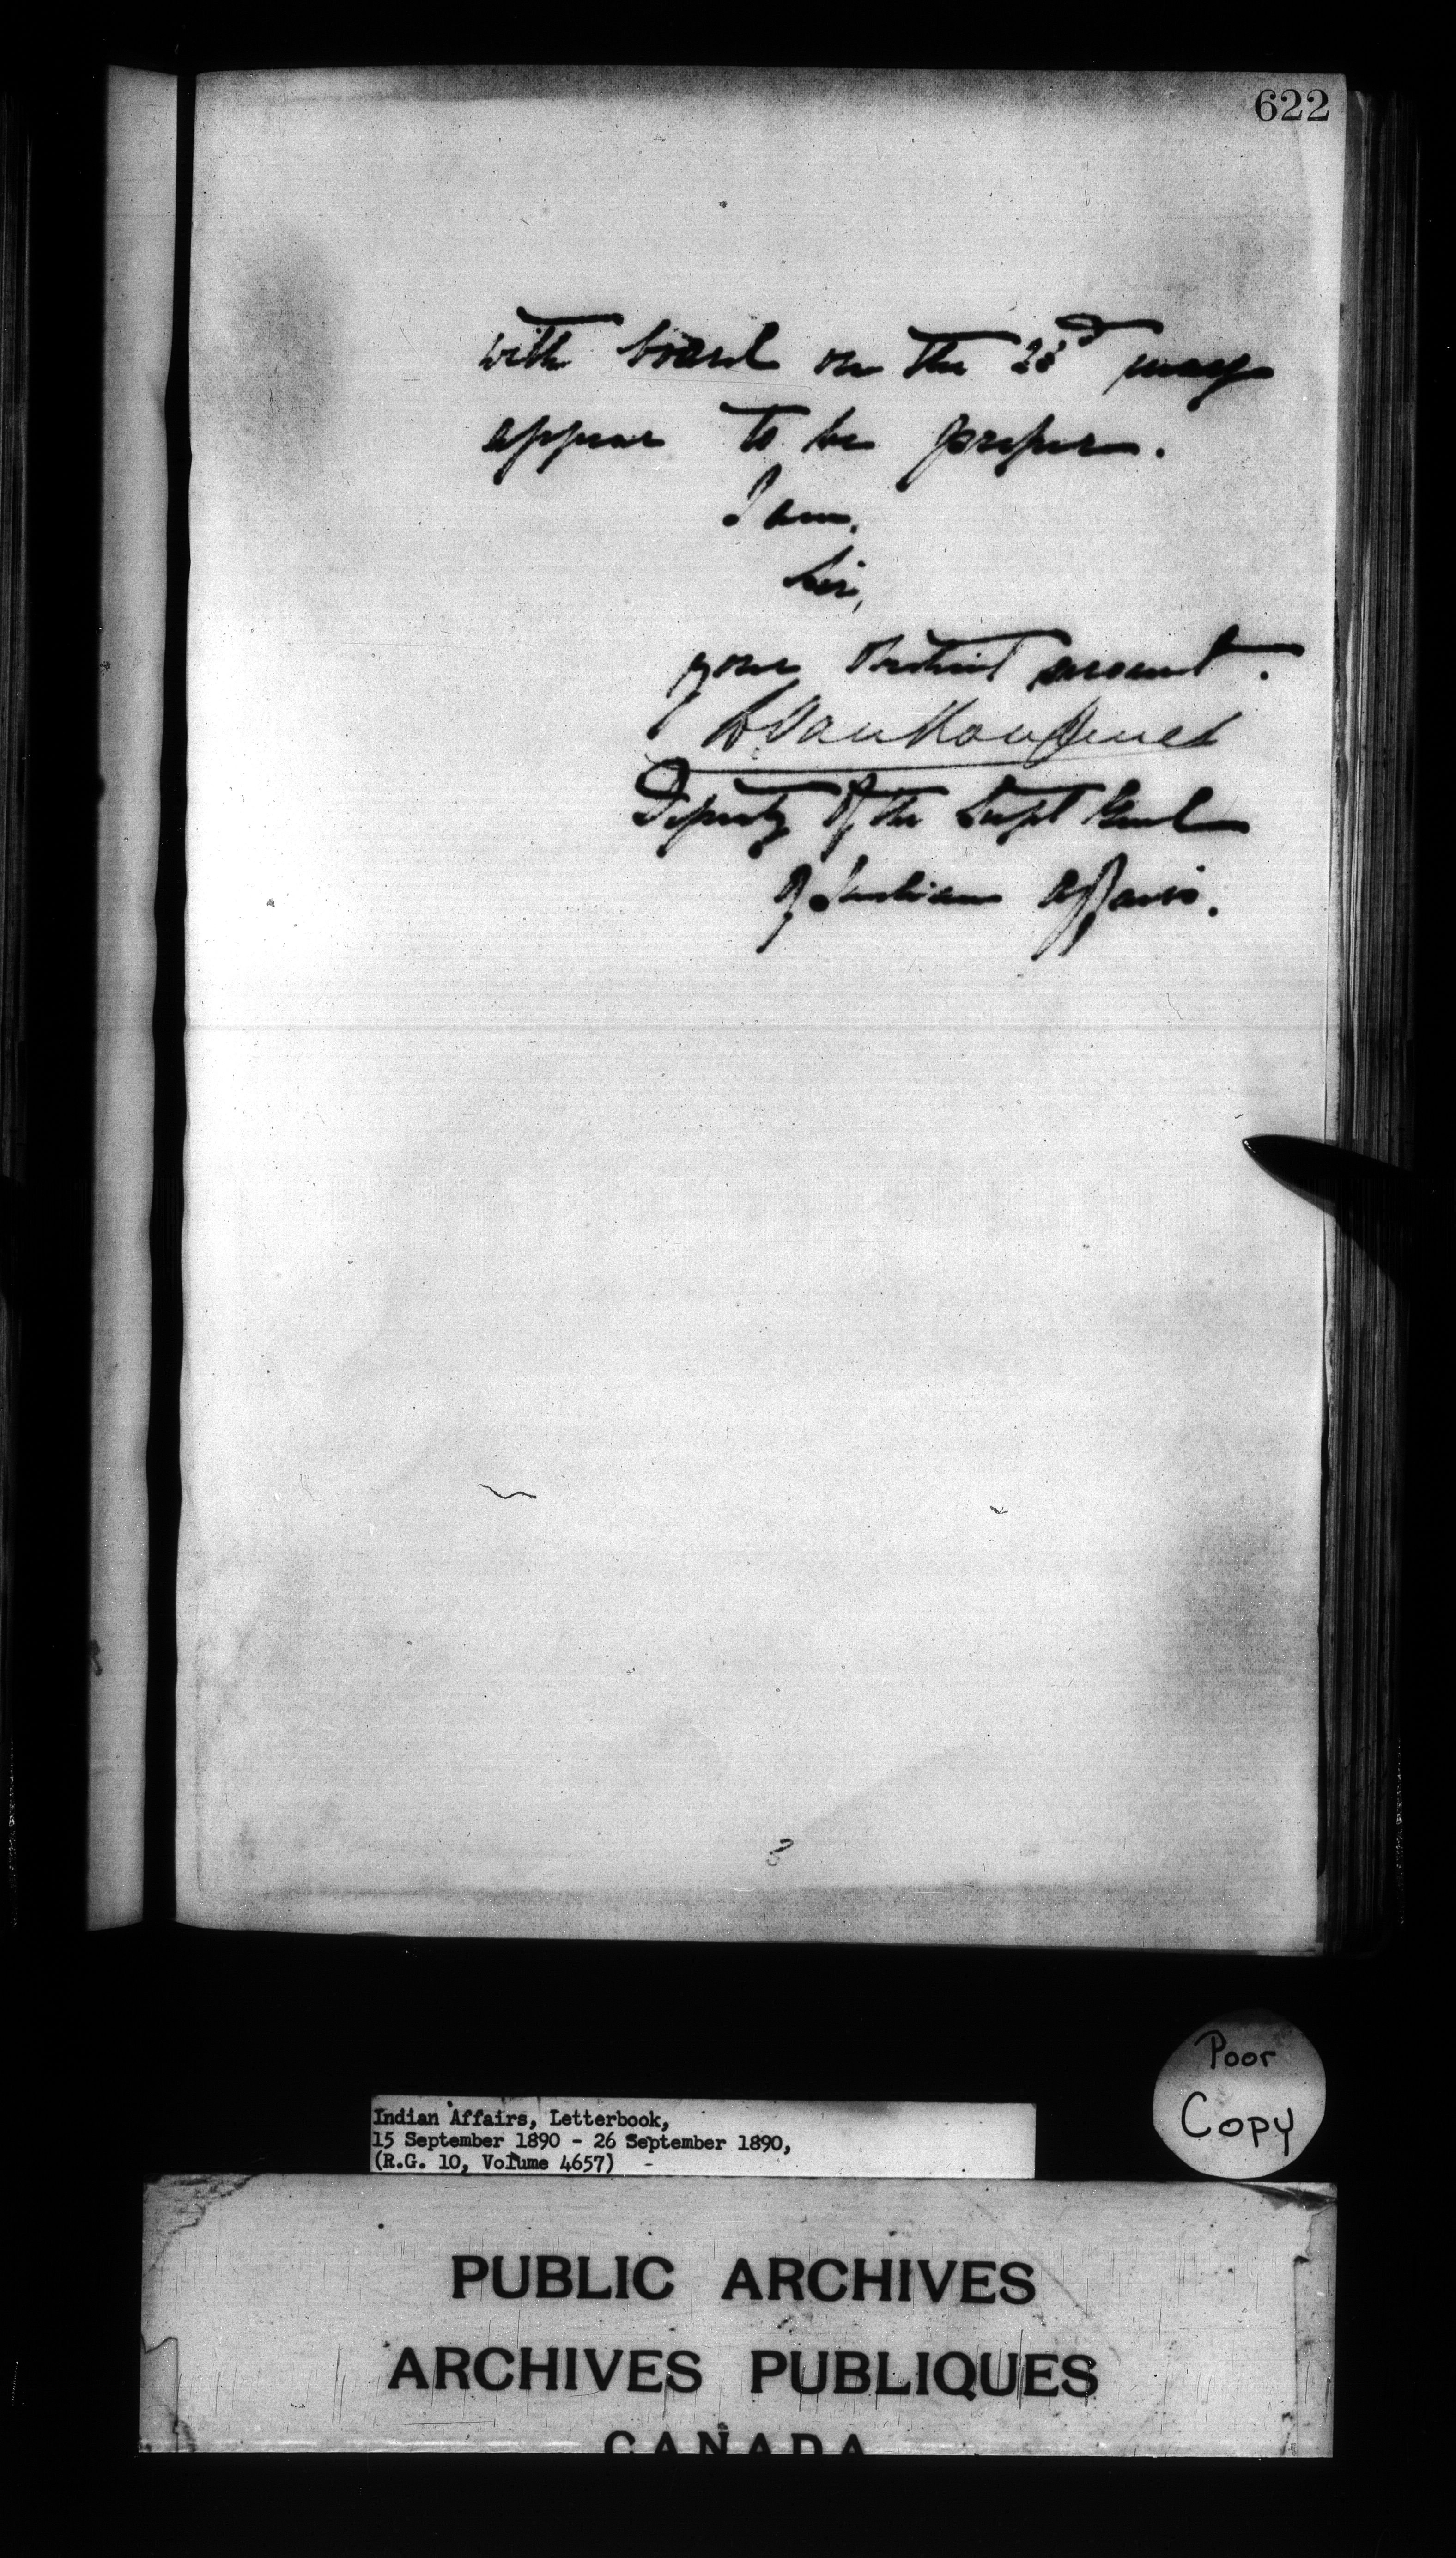 622
with board on the 23d may
appear to be proper.
I am,
Sir,
your obedient servant.
L. VanKoughnet
Deputy of the Supt Genl
of Indian Affairs.
Poor
Copy
Indian Affairs, Letterbook,
15 September 1890 - 26 September 1890,
(R.G. 10, Volume 4657)
PUBLIC ARCHIVES
ARCHIVES PUBLIQUES
CANADA